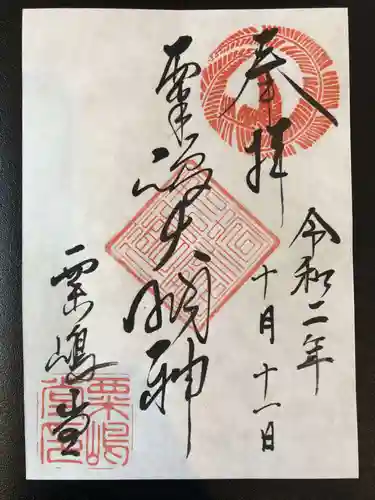 奉拝
令和二年
十月十一日
粟嶋大明神
粟嶋堂
粟嶋
堂印